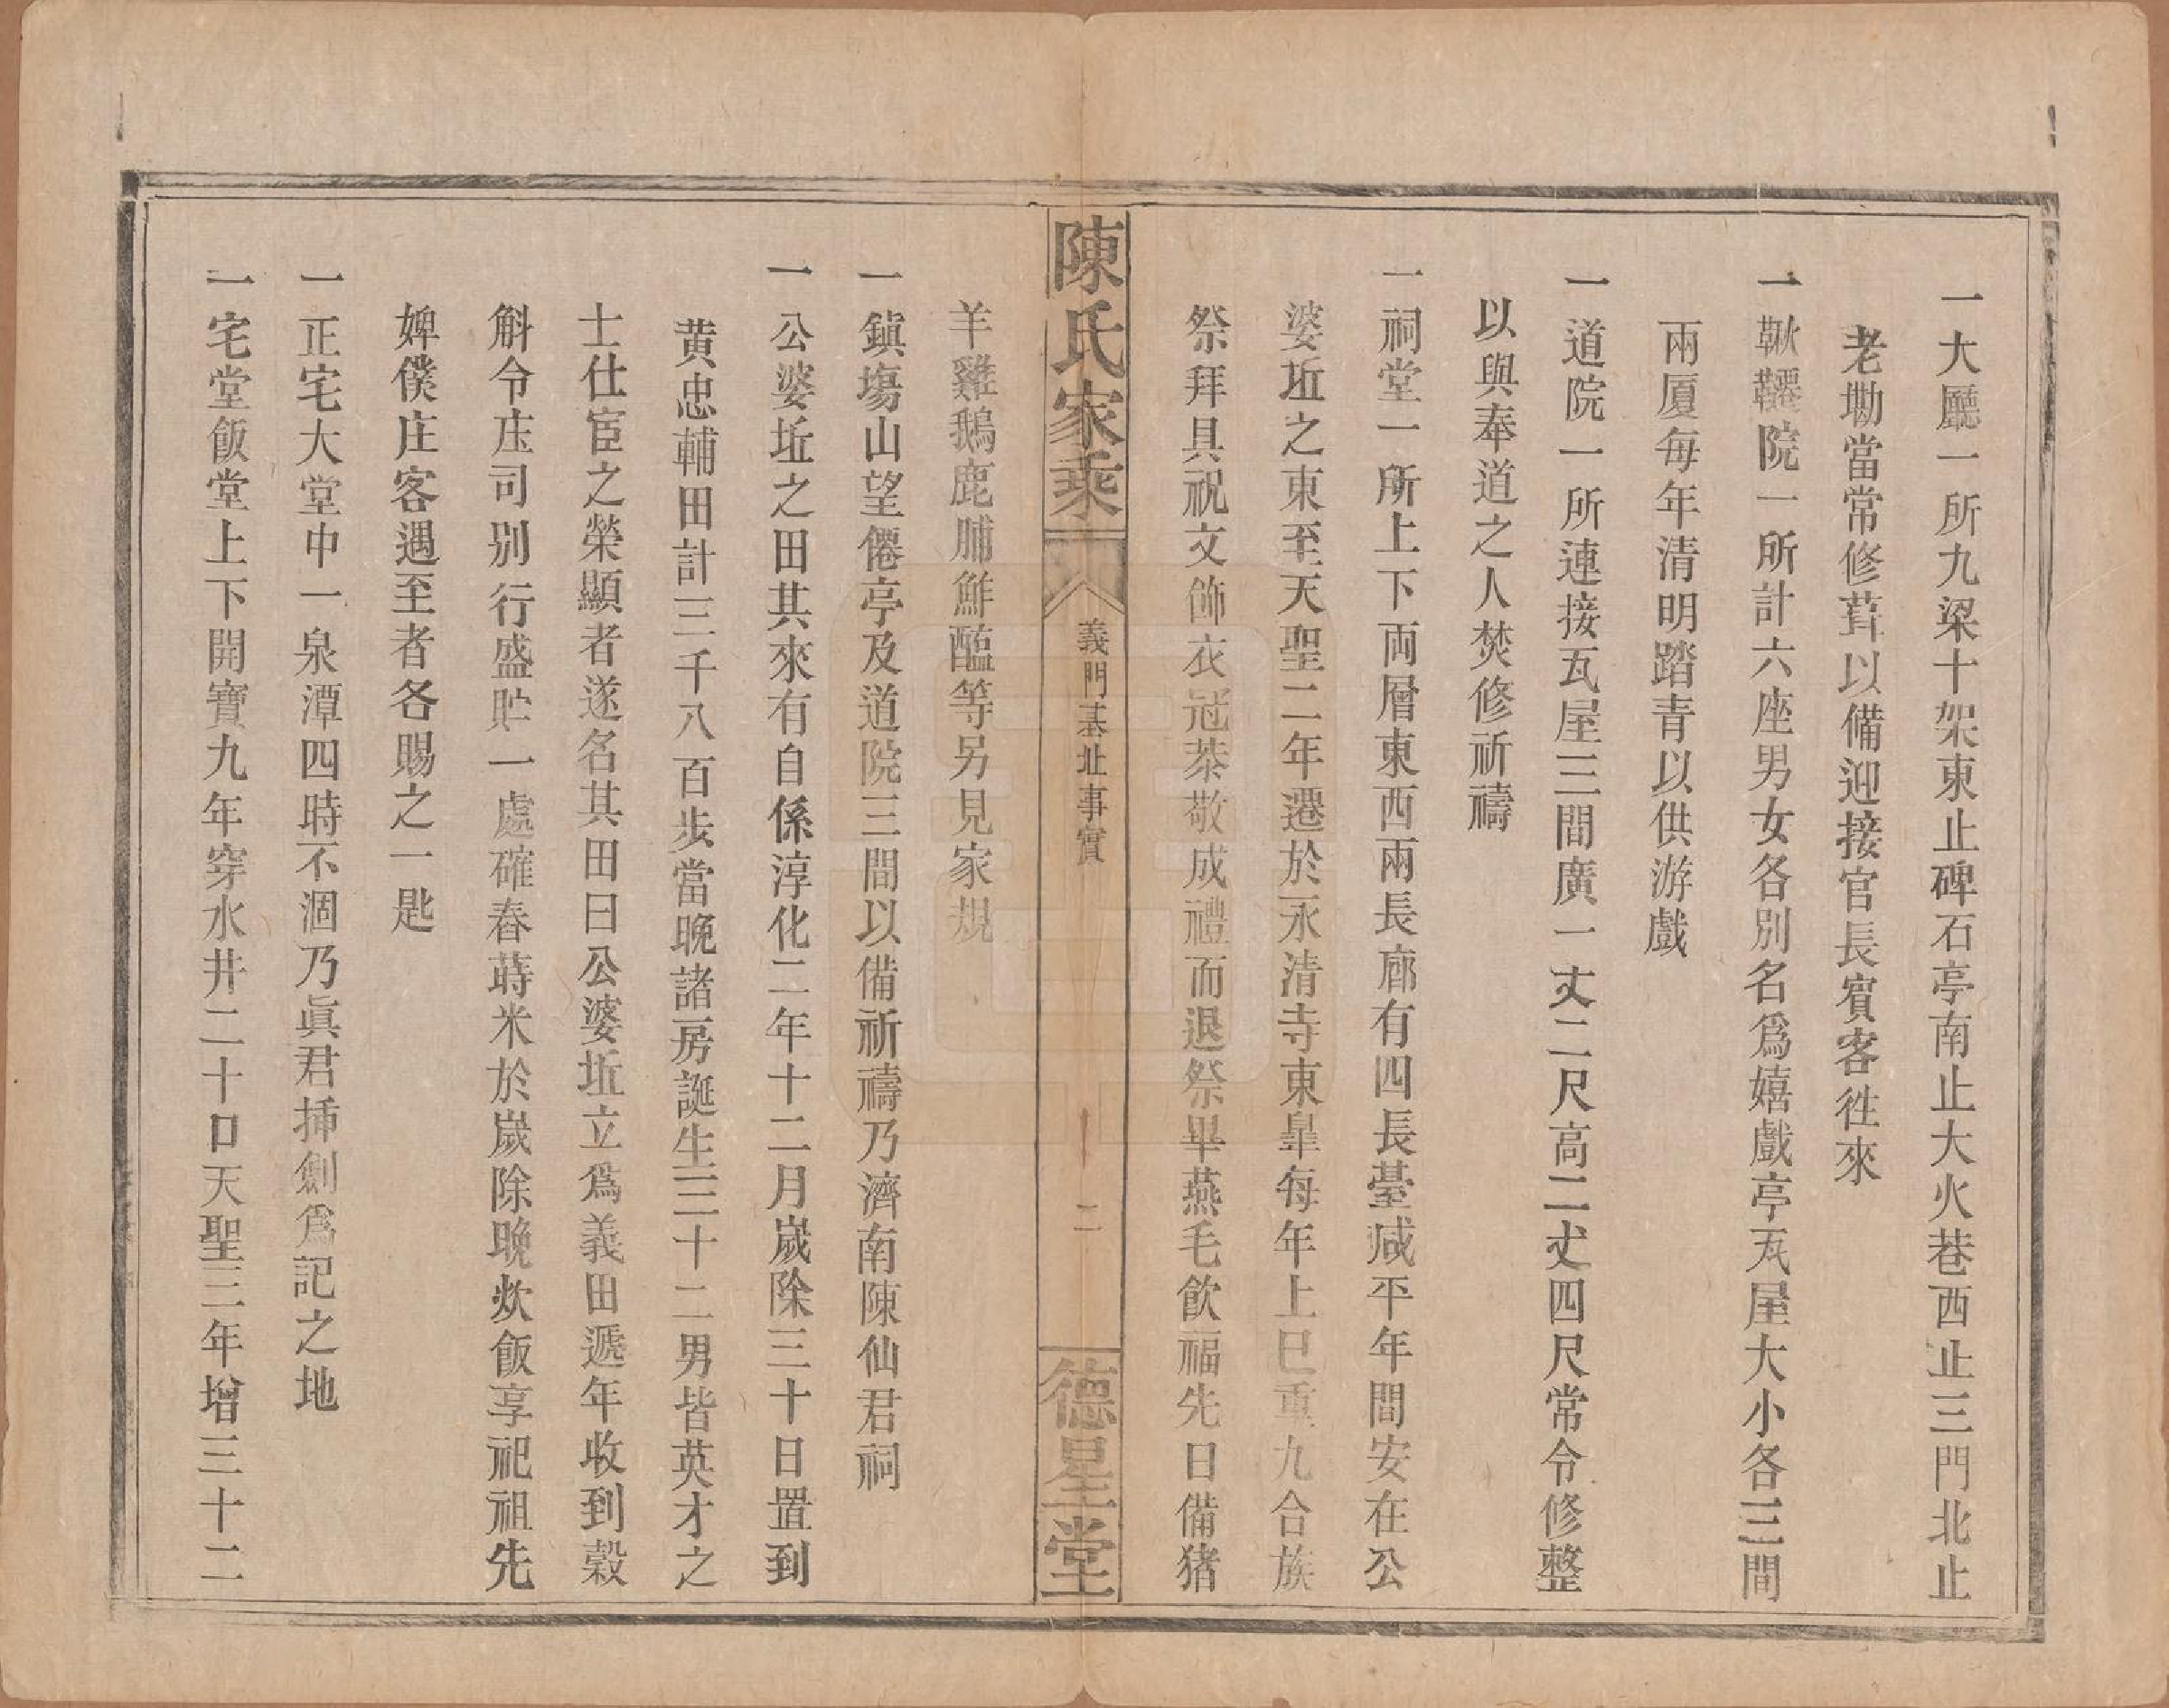 一大廳一所九梁十架東止碑石亭南止大火巷西止三門北止
老墈當常修葺以備迎接官長賓客徃來
一鞦韆院一所計六座男女各別名爲嬉戲亭瓦屋大小各三間
兩厦每年清明踏青以供游戲
一道院一所連接瓦屋三間廣一丈二尺高二丈四尺常令修整
以與奉道之人焚修祈禱
一祠堂一所上下両層東西兩長廊有四長臺咸平年間安在公
婆坵之東至天聖二年遷於永清寺東臯每年上巳重九合族
祭拜具祝文飾衣冠恭敬成禮而退祭畢燕毛飲福先日備猪
陳氏家乘
義門基址事實
二
德星堂
羊雞鵝鹿脯鮮醢等另見家規
一鎭塲山望僊亭及道院三間以備祈禱乃濟南陳仙君祠
一公婆坵之田其來有自係淳化二年十二月嵗除三十日置到
黄忠輔田計三千八百步當晚諸房誕生三十二男皆英才之
士仕宦之榮顯者遂名其田曰公婆坵立爲義田遞年收到穀
斛令庄司别行盛貯一處確舂蒔米於嵗除晚炊飯享祀祖先
婢僕庄客遇至者各賜之一匙
一正宅大堂中一泉潭四時不涸乃眞君揷劍爲記之地
一宅堂飯堂上下開寶九年穿水井二十口天聖三年增三十二